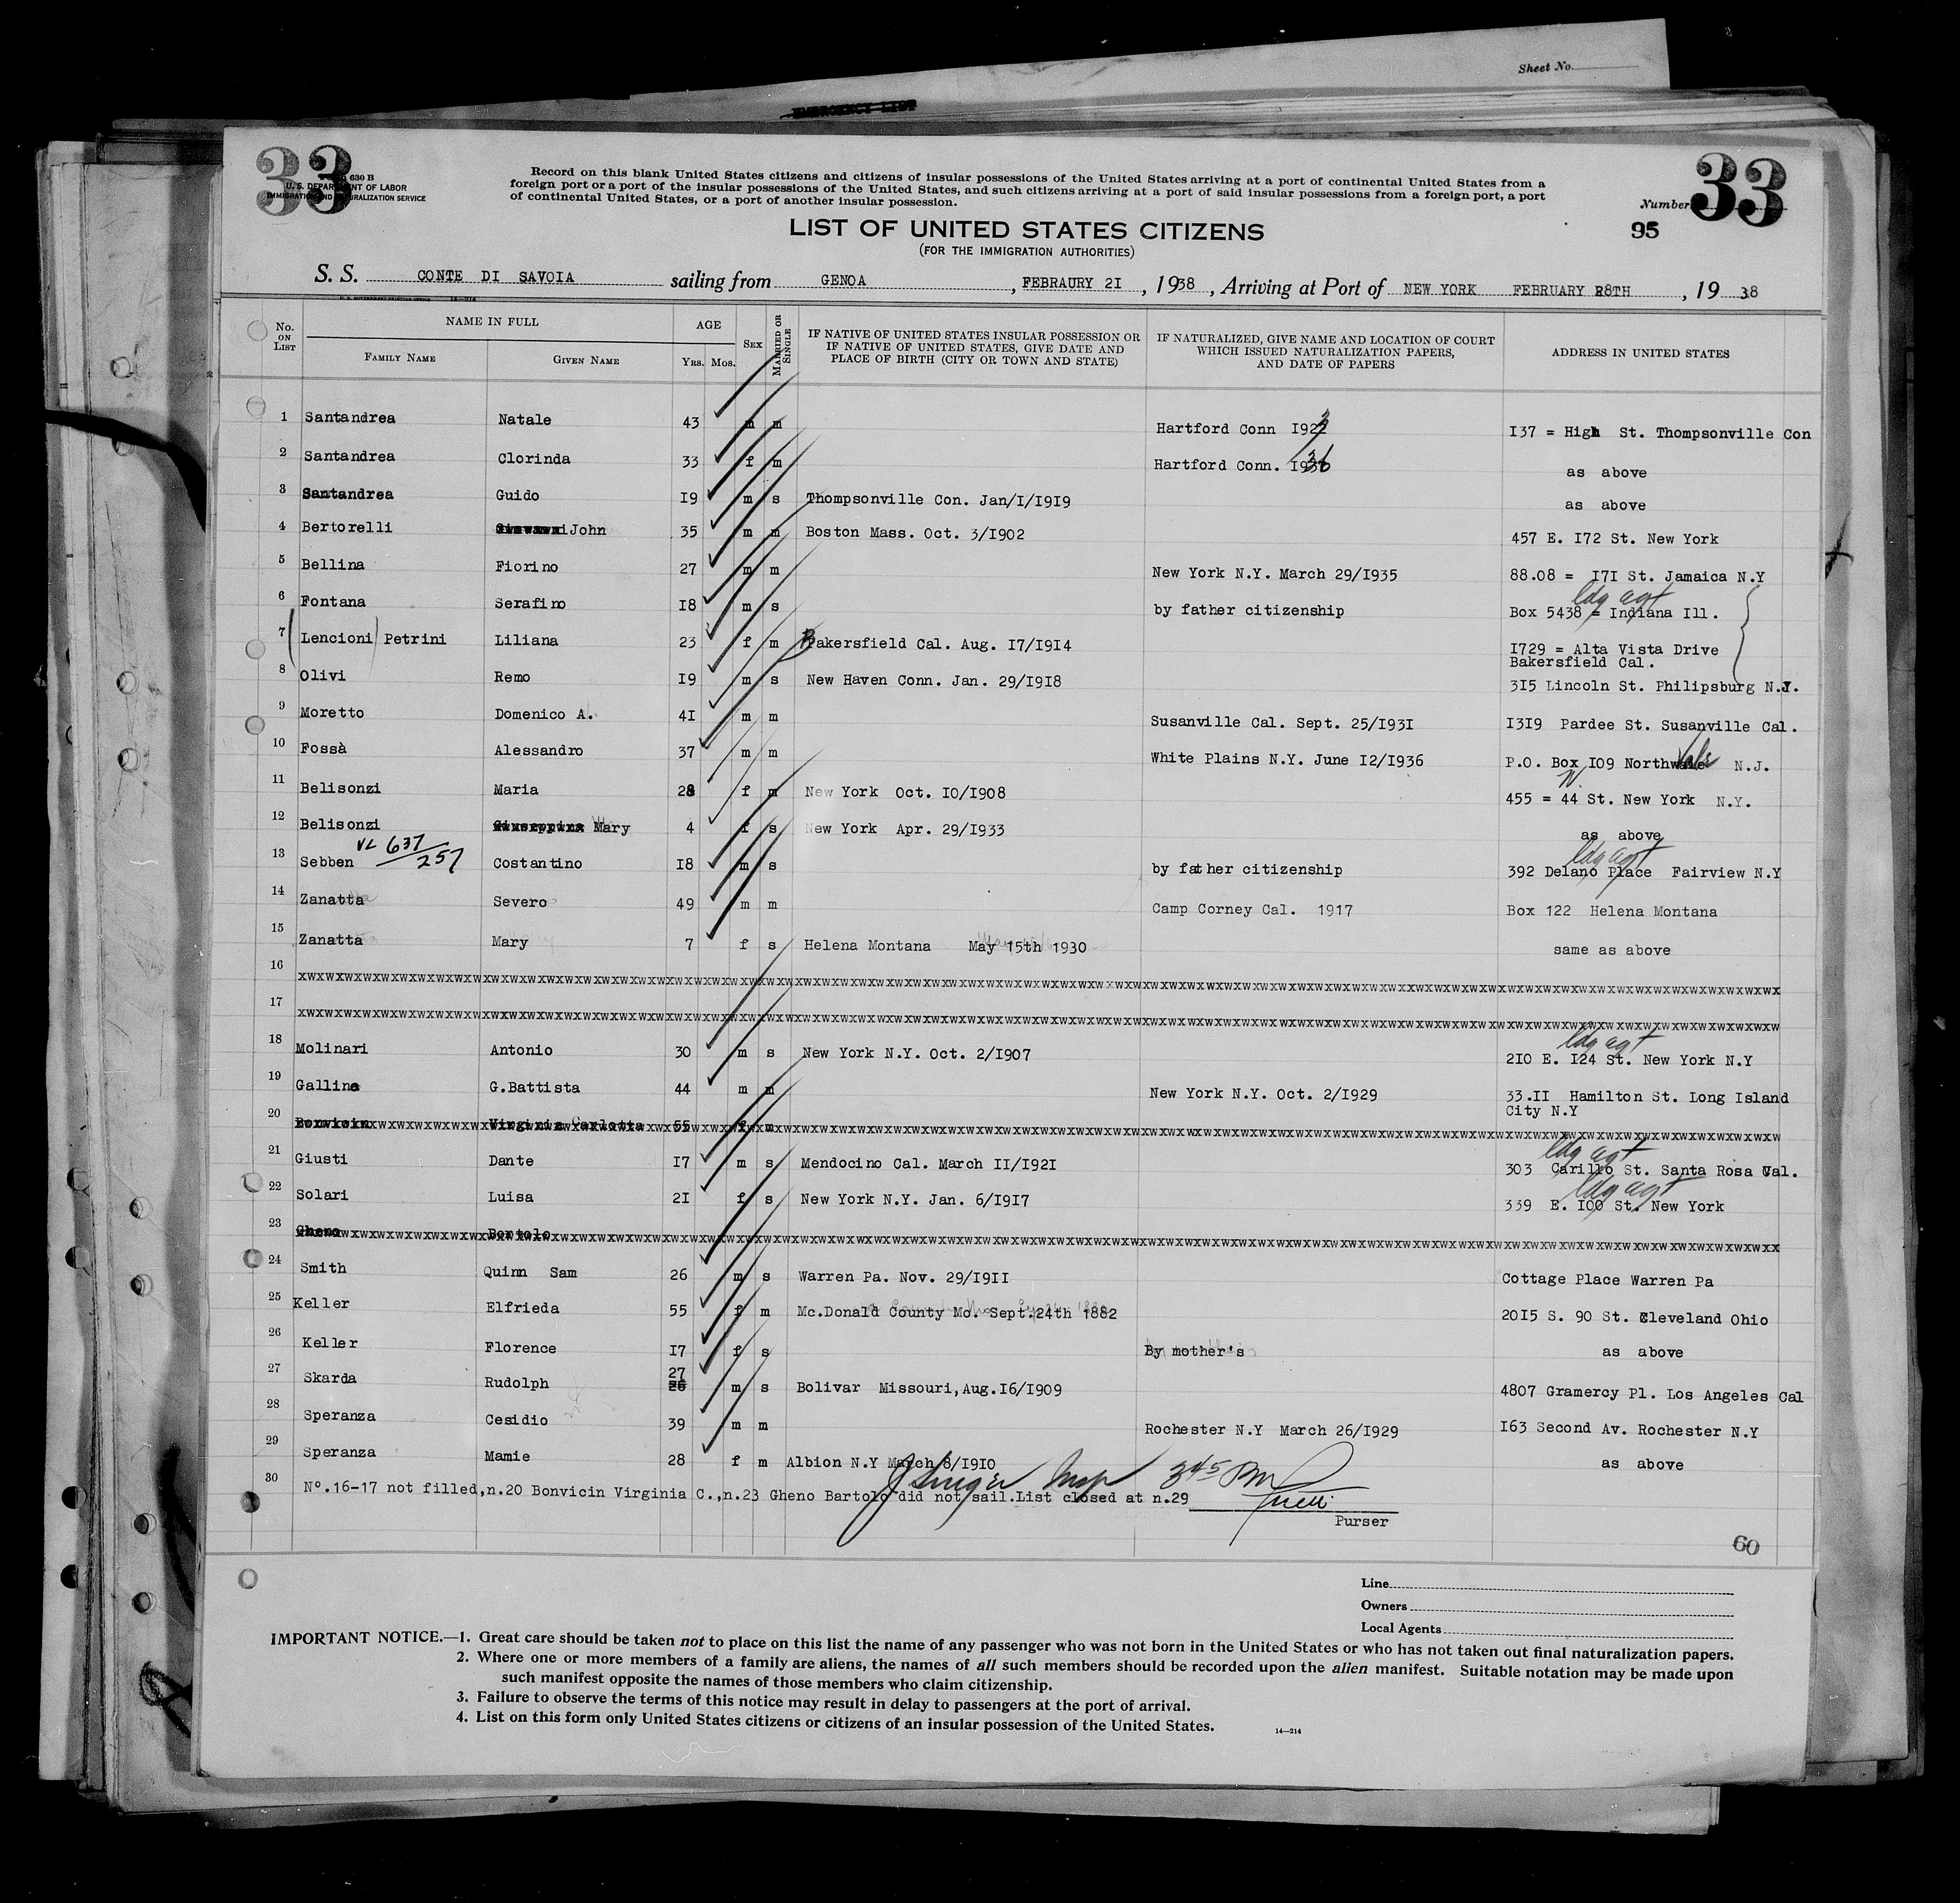 Sheet No.
EMERGENCY LIST
33
630 B
U. S. DEPARTMENT OF LABOR
IMMIGRATION AND NATURALIZATION SERVICE
Record on this blank United States citizens and citizens of insular possessions of the United States arriving at a port of continental United States from a
foreign port or a port of the insular possessions of the United States, and such citizens arriving at a port of said insular possessions from a foreign port, a port
of continental United States, or a port of another insular possession.
Number 33
95
LIST OF UNITED STATES CITIZENS
(FOR THE IMMIGRATION AUTHORITIES)
S. S. CONTE DI SAVOIA sailing from GENOA , FEBRAURY 2I , 1938 , Arriving at Port of NEW YORK FEBRUARY 28TH , 19 38
No. ON LIST
NAME IN FULL
FAMILY NAME
GIVEN NAME
AGE
Yrs. Mos.
SEX
MARRIED OR SINGLE
IF NATIVE OF UNITED STATES INSULAR POSSESSION OR
IF NATIVE OF UNITED STATES, GIVE DATE AND
PLACE OF BIRTH (CITY OR TOWN AND STATE)
IF NATURALIZED, GIVE NAME AND LOCATION OF COURT
WHICH ISSUED NATURALIZATION PAPERS,
AND DATE OF PAPERS
ADDRESS IN UNITED STATES
1 Santandrea Natale 43 m m Hartford Conn I37 = High St. Thompsonville Con
2 Santandrea Clorinda 33 f m Hartford Conn. as above
3 Santandrea Guido I9 m s Thompsonville Con. Jan/I/I9I9 as above
4 Bertorelli John 35 m m Boston Mass. Oct. 3/I902 457 E. I72 St. New York
5 Bellina Fiorino 27 m m New York N.Y. March 29/I935 88.08 = I7I St. Jamaica N.Y
ldg agt
6 Fontana Serafino I8 m s by father citizenship Box 5438 = Indiana Ill.
7 (Lencioni) Petrini Liliana 23 f m Bakersfield Cal. Aug. I7/I9I4 I729 = Alta Vista Drive
Bakersfield Cal.
8 Olivi Remo I9 m s New Haven Conn. Jan. 29/I9I8 3I5 Lincoln St. Philipsburg N.J.
9 Moretto Domenico A. 4I m m Susanville Cal. Sept. 25/I93I I3I9 Pardee St. Susanville Cal.
10 Fossà Alessandro 37 m m White Plains N.Y. June I2/I936 P.O. Box I09 Northvale N.J.
11 Belisonzi Maria 28 f m New York Oct. IO/I908 455 = W. 44 St. New York N.Y.
12 Belisonzi Giuseppina Mary 4 f s New York Apr. 29/I933 as above
VL 637/257
ldg agt
13 Sebben Costantino I8 m s by father citizenship 392 Delano Place Fairview N.Y
14 Zanatta Severo 49 m m Camp Corney Cal. 1917 Box 122 Helena Montana
15 Zanatta Mary 7 f s Helena Montana May 15th 1930 same as above
16
17
ldg agt
18 Molinari Antonio 30 m s New York N.Y. Oct. 2/I907 2IO E. I24 St. New York N.Y
19 Gallina G.Battista 44 m m New York N.Y. Oct. 2/I929 33.II Hamilton St. Long Island
City N.Y
20 Bonvicin Virginia Carlotta 55 f m
ldg agt
21 Giusti Dante I7 m s Mendocino Cal. March II/I92I 303 Carillo St. Santa Rosa Cal.
ldg agt
22 Solari Luisa 2I f s New York N.Y. Jan. 6/I9I7 339 E. IOO St. New York
23 Gheno Bortolo
24 Smith Quinn Sam 26 m s Warren Pa. Nov. 29/I9II Cottage Place Warren Pa
25 Keller Elfrieda 55 f m Mc.Donald County Mo. Sept.24th 1882 20I5 S. 90 St. Cleveland Ohio
26 Keller Florence I7 f s By mother's as above
27 Skarda Rudolph 27 26 m s Bolivar Missouri,Aug.I6/I909 4807 Gramercy Pl. Los Angeles Cal
28 Speranza Cesidio 39 m m Rochester N.Y March 26/I929 I63 Second Av. Rochester N.Y
29 Speranza Mamie 28 f m Albion N.Y March 8/I9IO as above
30 Nº.16-17 not filled,n.20 Bonvicin Virginia C.,n.23 Gheno Bartolo did not sail.List closed at n.29
Insp 3 45 PM
Purser
60
Line
Owners
Local Agents
IMPORTANT NOTICE.—1. Great care should be taken not to place on this list the name of any passenger who was not born in the United States or who has not taken out final naturalization papers.
2. Where one or more members of a family are aliens, the names of all such members should be recorded upon the alien manifest. Suitable notation may be made upon
such manifest opposite the names of those members who claim citizenship.
3. Failure to observe the terms of this notice may result in delay to passengers at the port of arrival.
4. List on this form only United States citizens or citizens of an insular possession of the United States.
14—214